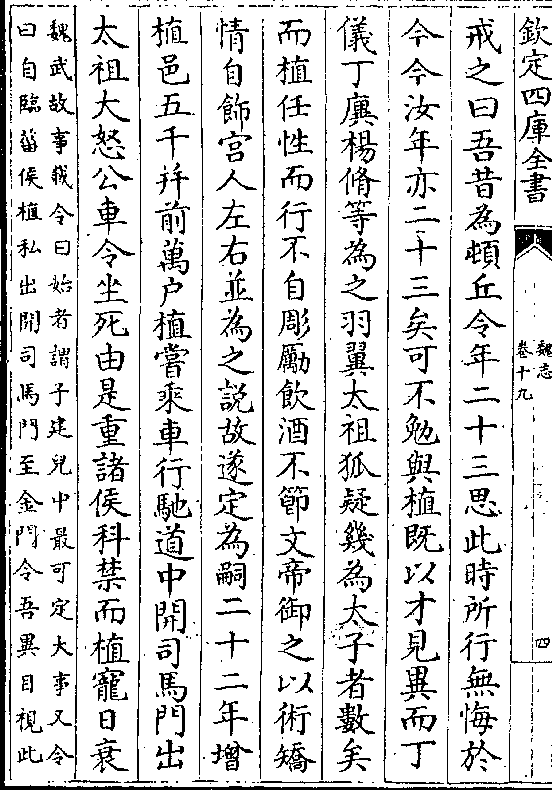 欽定四庫全書
魏志
卷十九
四
戒之曰吾昔為頓丘令年二十三思此時所行無悔於
今今汝年亦二十三矣可不勉與植既以才見異而丁
儀丁廙楊脩等為之羽翼太祖狐疑幾為太子者數矣
而植任性而行不自彫勵飲酒不節文帝御之以術矯
情自飾宫人左右並為之説故遂定為嗣二十二年增
植邑五千幷前萬户植嘗乘車行馳道中開司馬門出
太祖大怒公車令坐死由是重諸侯科禁而植寵日衰
魏武故事載令曰始者謂子建兒中最可定大事又令
曰自臨菑侯植私出開司馬門至金門令吾異目視此